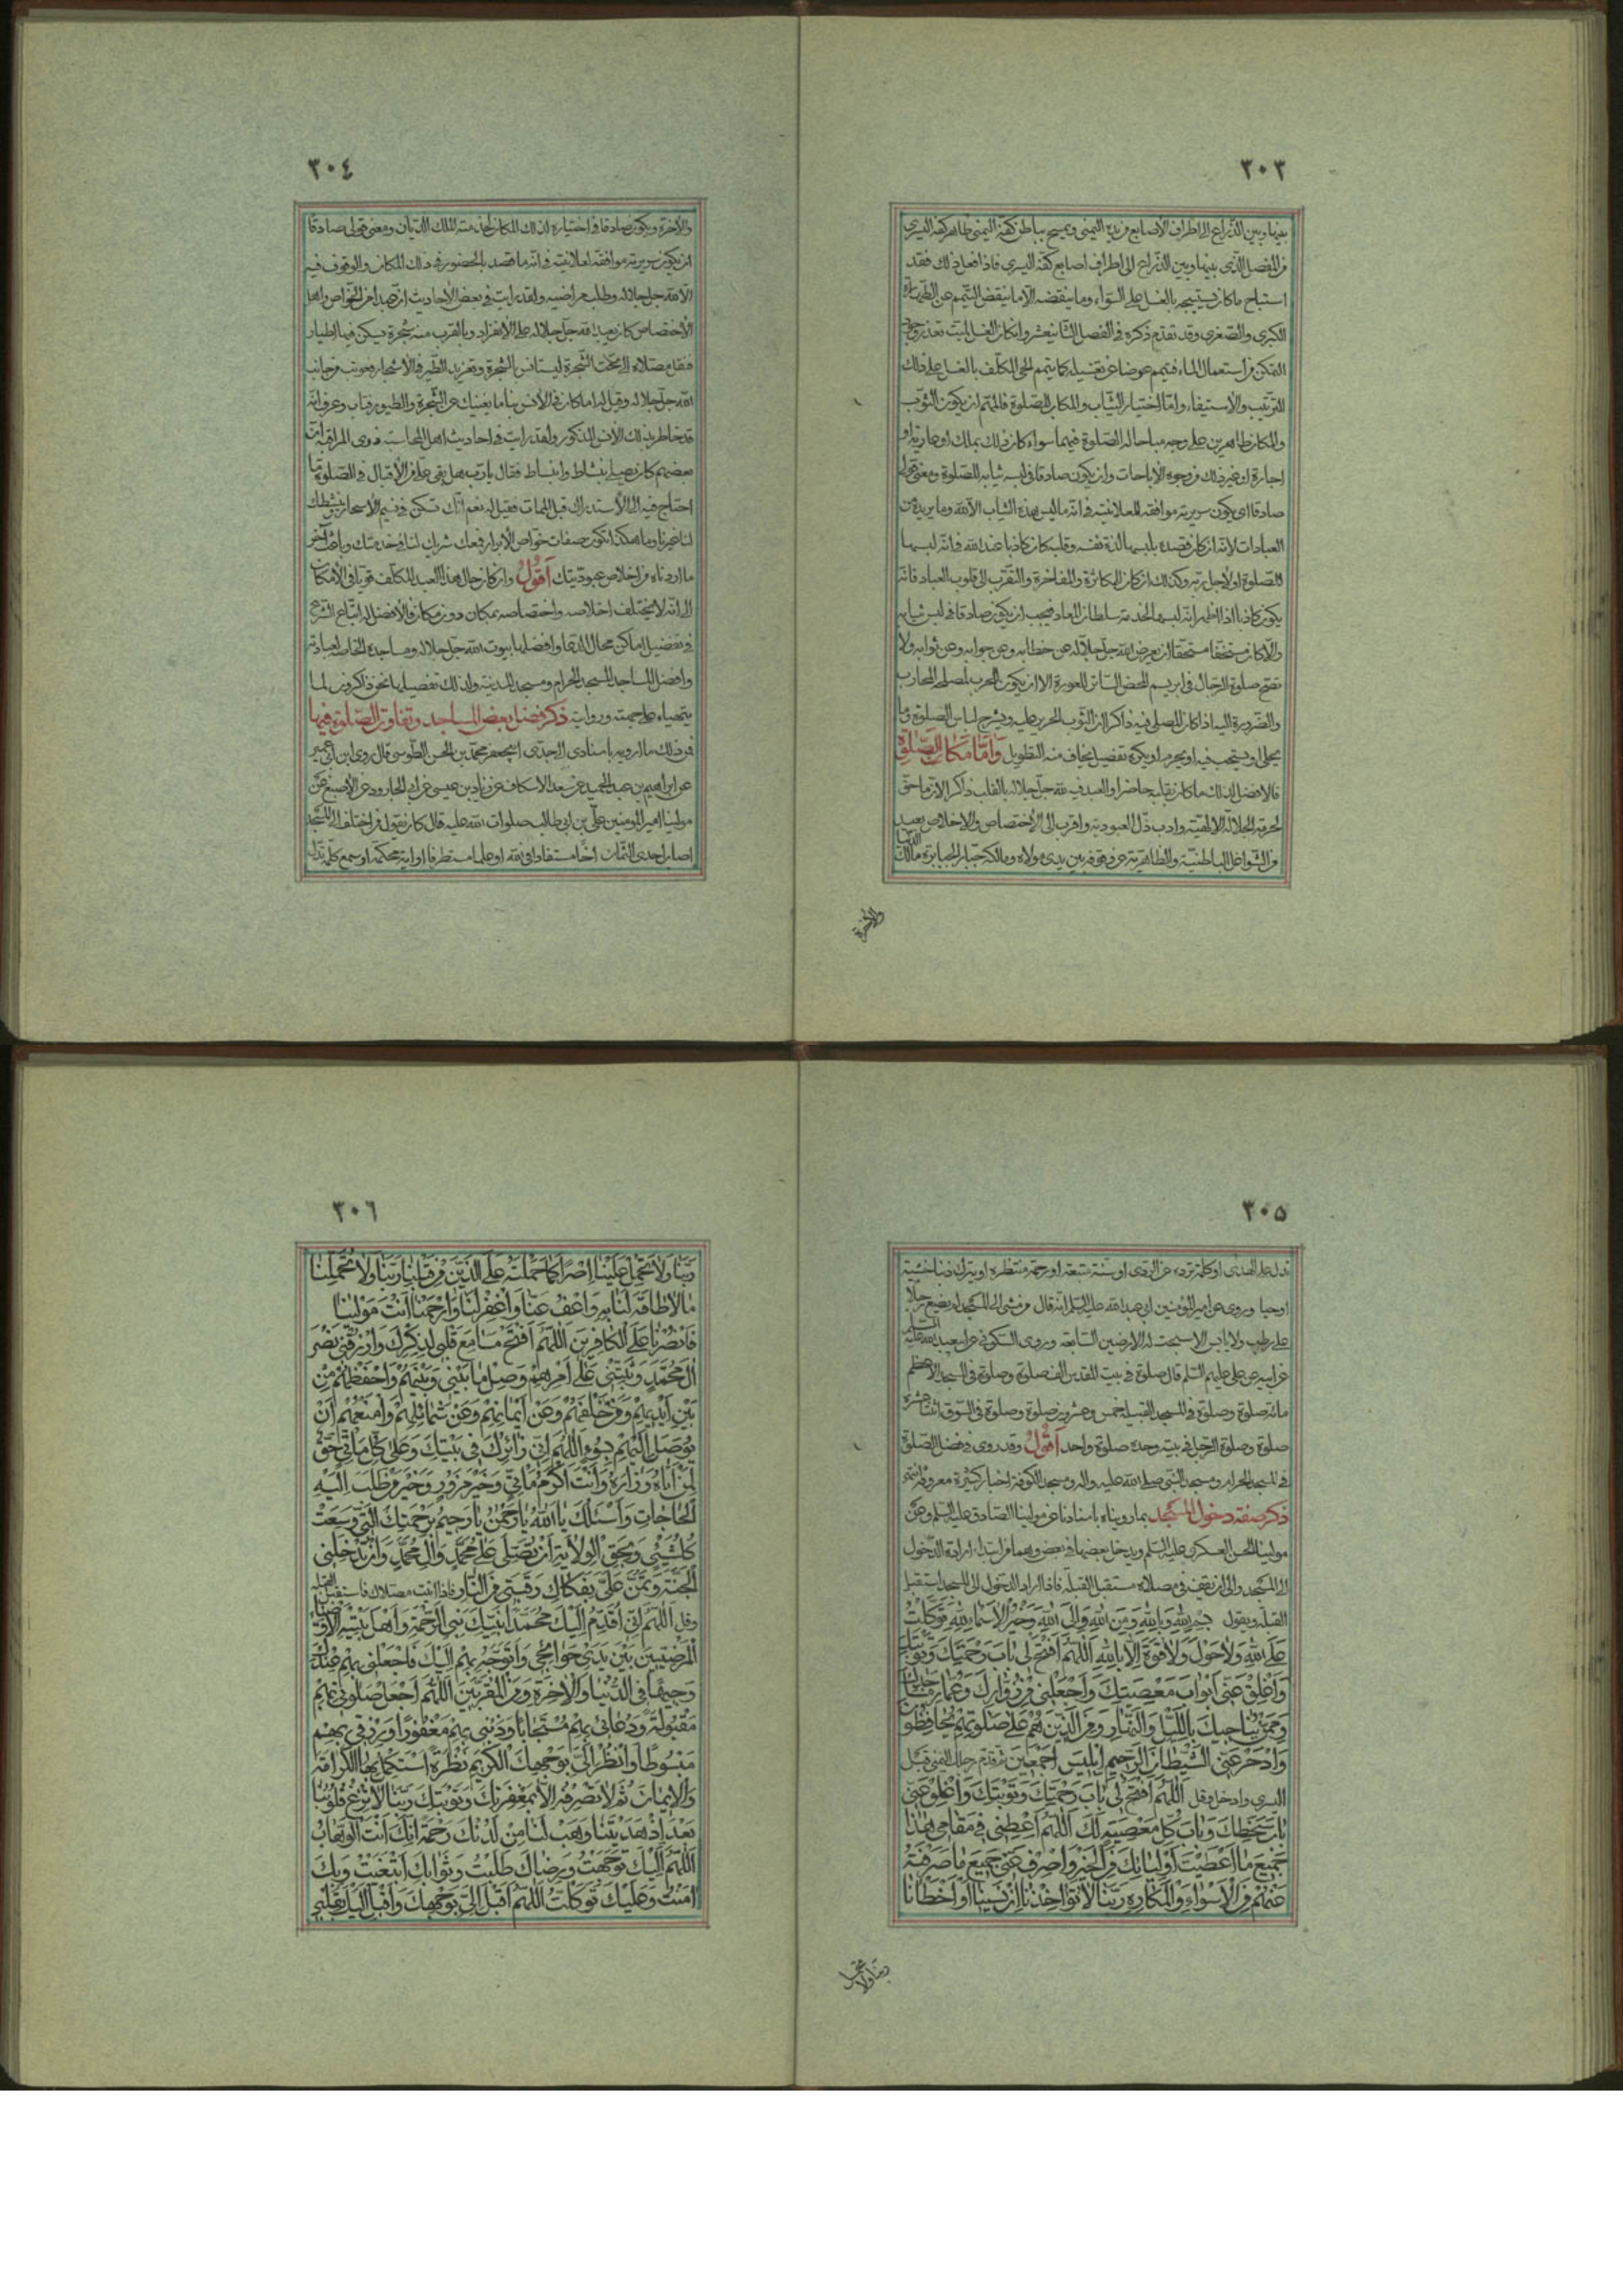 ٣٠٣
بينها وبين الذراع الى اطراف الأصابع من يده اليمنى ويمسح بباطن كفه اليمنى ظاهر كفه اليسرى
من المفصل الذى بينها وبين الذراع الى اطراف اصابع كفه اليسرى فاذا فعل ذلك فقد
استباح ماكان يستبيحه بالغسل على السواء وما ينقضه الا ما ينقض التيمم عن الطهارة
الكبرى والصغرى وقد تقدم ذكره فى الفصل الثانيعشر وانكان الغسل لميت تعذر
التمكن من استعمال الماء فييمم عوضا عن تغسيله كما يتمم الحى المكلف بالغسل على ذلك
الترتيب والاستيفاء وامّا اختيار الثياب والمكان للصلوة فالمهم ان يكون الثوب
والمكان طاهرين على وجه مباحا له الصلوة فيهما سواء كان ذلك بملك او عارية او
اجارة او غير ذلك من وجوه الاباحات وان يكون صادقا فى لبسه ثيابه للصلوة ومعنى قولى
صادقا اى يكون سريرته موافقة للعلانيته فى انه ما ليس هذه الثياب الا لله وما يريده من
العبادات لانه ان كان قصده بلبسها لذة نفسه وقلبه كان كاذبا عند الله فى انه لبسها
للصلوة او لأجل ربه وكذلك ان كان للمكاثرة والمفاخرة والتقرب الى قلوب العباد فانه
يكون كاذبا اذا اظهر انه لبسها لخدمة سلطان المعاد فيجب ان يكون صادقا فى لبس ثيابه
والا كان مستخفا مستحقا ان يعرض الله جل جلاله عن خطابه وعن جوابه وعن ثوابه ولا
تصح صلوة الرجال فى ابريسم المحض الساتر للعورة الا ان يكون لحرب لمصلحة المحارب
والضرورة اليه اذا كان المصلى فيه ذاكرا ان الثوب الحرير عليه ويشرح لباس الصلوة وما
يحل او يستحب فيه او يحرم او يكره تفصيل يخاف منه التطويل وَاَمّا مَكان الصَّلوة
فالافضل لذلك ما كان بقلبه حاضرا والعبد فيه لله جل جلاله بالقلب ذاكرا لازما حق
لحرمة الجلالة الالهية وادب ذل العبودية واقرب الى الاختصاص والاخلاص بعيد
من الشواغل الباطنية والظاهرية عن هو فيه بين يدى مولاه ومالكه جبار الجبابرة مالك الدنيا
والاخرة
٣٠٤
والاخرة ويكون صادقا فى اختياره لذلك المكان لخدمته الملك الديان ومعنى قولى صادقا
ان يكون سريرته موافقة لعلانيته فى انه ما قصد بالحضور فى ذلك المكان والوقوف فيه
الا لله جل جلاله وطلب مراضيه ولقد رايت فى بعض الاحاديث ان عبدا من الخواص واهل
الاختصاص كان يعبد الله جل جلاله على الانفراد وبالقرب منه شجرة يسكن فيها اطيار
فنقل مصلاه الى تحت الشجرة ليستانس بالشجرة وتغريد الطير فى الاشجار فعوتب من جانب
الله جل جلاله وقيل له اما كان فى الأنس بنا ما يغنيك عن الشجرة والطيور فتاب وعرف انه
قد خاطر بذلك الأنس المذكور ولقد رايت فى احاديث اهل المحاسبة ذوى المراقبة ان
بعضهم كان يصلى بنشاط وانبساط فقال يا رب هل بقى على من الاقبال فى الصلوة ما
احتاج فيه الى الاستدراك قبل الممات فقيل له نعم انك تسكن فى نسيم الاسحار ينشطك
لنا غيرنا وما هكذا تكون صفات خواص الأبرار فمعك شريك لنا فى خدمتك وباعث آخر
ما اردناه من اخلاص عبوديتك اَقُولُ وان كان حال هذا العبد المكلف قويا فى الامكان
الى انه لا يختلف اخلاصه واختصاصه بمكان دون مكان فالافضل له اتباع الشرع
فى تفضيل اماكن محال الدعا وافضلها بيوت الله جل جلاله ومساجده الخاصة لعبادته
وافضل المساجد المسجد الحرام ومسجد المدينة ولذلك تفصيل ها نحن ذاكرون لما
يتهياء على جهته ورواية ذكر فضل بعض المساجد وتفاوت الصلوة فيها
فمن ذلك ما ارويه باسنادى الى جدى ابيجعفر محمد بن الحسن الطوسى قال روى ابن ابى عمير
عن ابراهيم بن عبد الحميد عن سعد الاسكاف عن زياد بن عيسى عن ابى الجارود عن الاصبغ عن
مولينا امير المؤمنين على بن ابى طالب صلوات الله عليه قال كان يقول من اختلف الى المسجد
اصاب احدى الثمان اخا مستفادا فى الله او علما مستطرفا او اية محكمة او سمع كلمة تدل
٣٠٥
تدل على الهدى او كلمة ترده عن الردى او سنة متبعة او رحمة منتظره او يترك ذنبا خشية
او حيا وروى عن امير المؤمنين ابى عبد الله عليه السلم انه قال من مشى الى المسجد لم يضع رجلا
على رطب ولا يابس الا سبحت له الارضين السابعة وروى السكونى عن ابيعبد الله عليه السلم
عن ابيه عن على عليهم السلم قال صلوة فى بيت المقدس الف صلوة وصلوة فى المسجد الاعظم
مائة صلوة وصلوة فى المسجد القبيله خمس وعشرين صلوة وصلوة فى السوق اثنتا عشرة
صلوة وصلوة الرجل فى بيته وحده صلوة واحد اَقُولُ وقد روى فى فضل الصلوة
فى المسجد الحرام ومسجد النبى صلى الله عليه واله ومسجد الكوفة اخبار كثيرة معروفة
ذكر صفة دخول المسجد بما رويناه باسنادنا عن مولينا الصادق عليه السلم وعن
مولينا الحسن العسكرى عليه السلم ويدخل بعضها فى بعض وهما من ابتداء ارادة الدخول
الى المسجد والى ان يقف فى مصلاه مستقبل القبلة فاذا اراد الدخول الى المسجد استقبل
القبله ويقول بسم الله وبالله ومن الله والى الله وخير الاسماء لله توكلت
على الله ولا حول ولا قوة الا بالله اللهم افتح لى باب رحمتك وتوبتك
واغلق عنى ابواب معصيتك واجعلنى من زوارك وعمار مساجدك
وممن يناجيك بالليل والنهار ومن الذين هم على صلوتهم يحافظون
وادحر عنى الشيطان الرجيم وابليس اجمعين ثم قدم رجلك اليمنى قبل
اليسرى وادخل وقل اللهم افتح لى باب رحمتك وتوبتك واغلق عنى
باب سخطك وباب كل معصية لك اللهم اعطنى فى مقامى هذا
جميع ما اعطيت اوليائك من الخير واصرف عنى جميع ما صرفته
عنهم من الاسواء والمكاره ربنا لا تؤاخذنا ان نسينا او اخطانا
ربنا ولا تحمل
٣٠٦
ربنا ولا تحمل علينا اصرا كما حملته على الذين من قبلنا ربنا ولا تحملنا
ما لا طاقة لنا به واعف عنا واغفر لنا وارحمنا انت مولينا
فانصرنا على الكافرين اللهم افتح مسامع قلبى لذكرك وارزقنى نصر
ال محمد وثبتنى على امرهم وصل ما بينى وبينهم واحفظهم من
بين ايديهم ومن خلفهم وعن ايمانهم وعن شمائلهم وامنعهم ان
يوصل اليهم بسوء اللهم انى زائرك فى بيتك وعلى كل ماتى حق
لمن اتاه وزاره وانت اكرم ماتى وخير مزور وخير من طلب اليه
الحاجات واسئلك يا الله يا رحمن يا رحيم برحمتك التى وسعت
كل شيئ وبحق الولاية ان تصلى على محمد وال محمد وان تدخلنى
الجنة وتمن على بفكاك رقبتى من النار فاذا اتيت مصلاك فاستقبل القبله
وقل اللهم انى اقدم اليك محمدا نبيك نبى الرحمة واهل بيته الاوصياء
المرضيين بين يدى حوائجى واتوجه بهم اليك فاجعلنى بهم عندك
وجيها فى الدنيا والاخرة ومن المقربين اللهم اجعل صلوتى بهم
مقبولة ودعائى بهم مستجابا وذنبى بهم مغفورا ورزقى بهم
مبسوطا وانظر الى بوجهك الكريم نظرة استكمل بها الكرامة
والايمان ثم لا تصرفه الا بمغفرتك وتوبتك ربنا لا تزغ قلوبنا
بعد اذ هديتنا وهب لنا من لدنك رحمة انك انت الوهاب
اللهم اليك توجهت ورضاك طلبت وثوابك ابتغيت وبك
امنت وعليك توكلت اللهم اقبل الى بوجهك واقبل اليك بقلبى